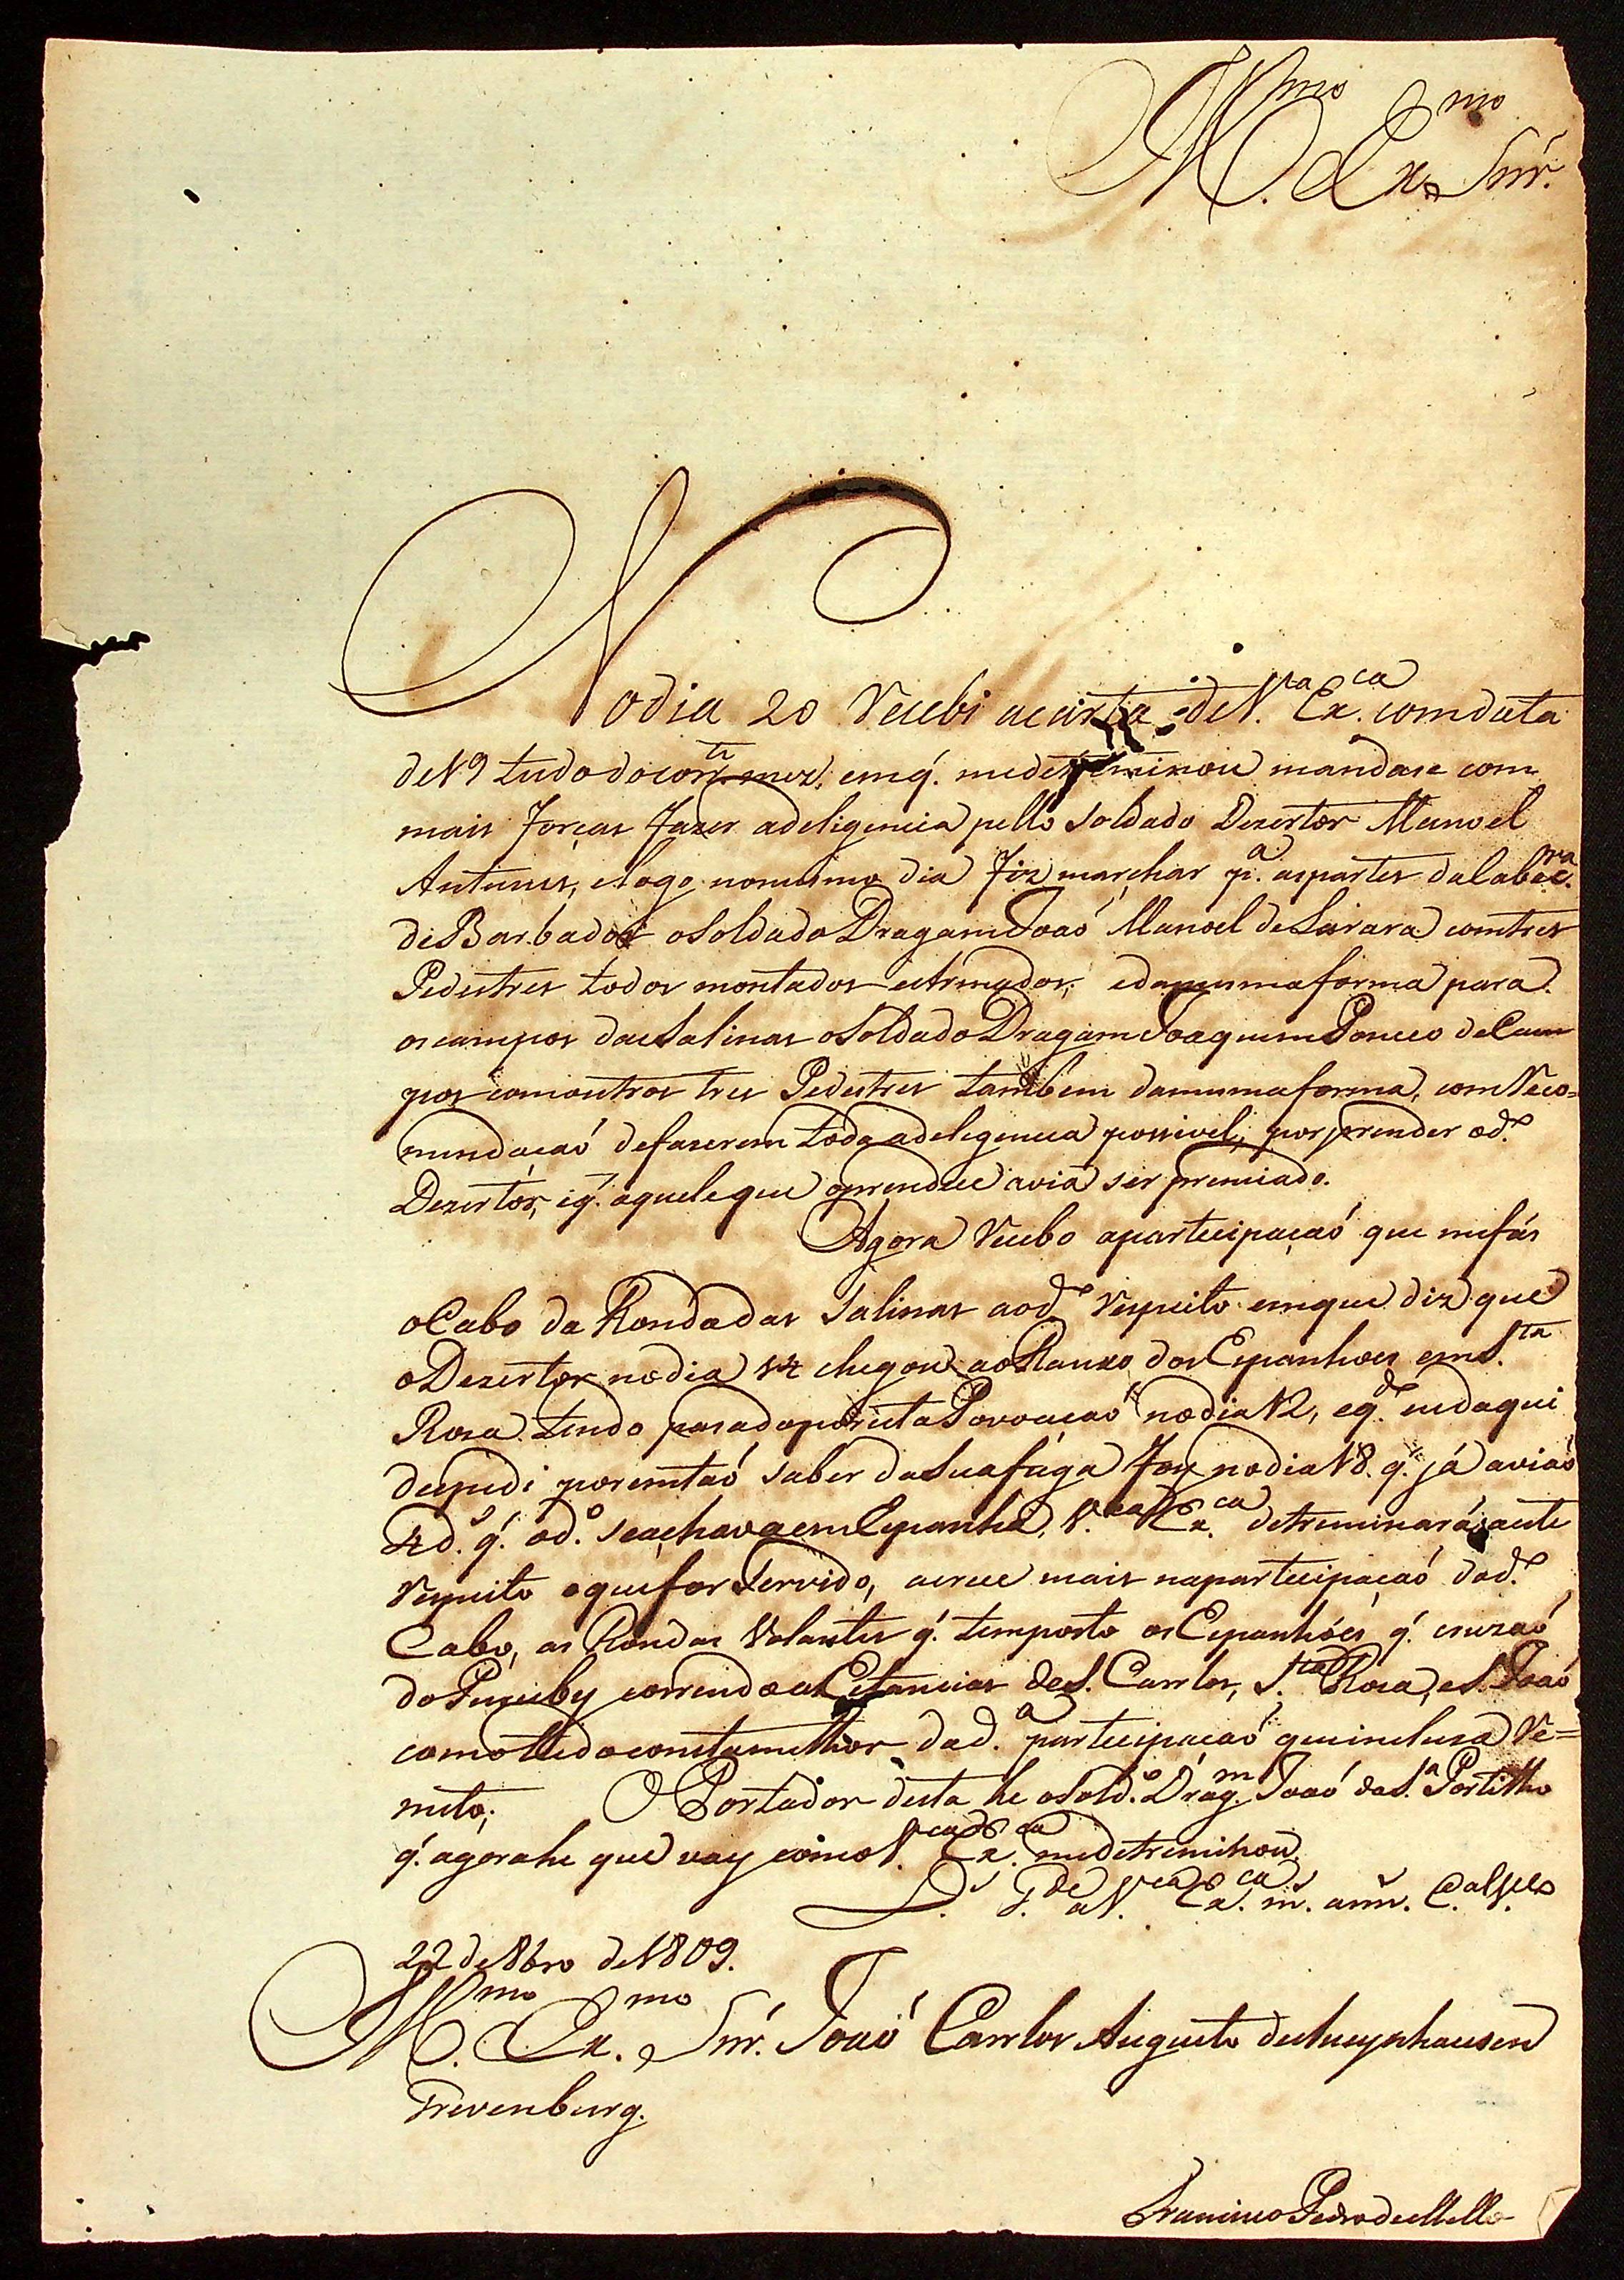 Ill.mo Ex.mo Snr.
No dia 20 recebi a carta de V.a Ex.ca com data
de 19 tudo do corr.te mez, em q. me detreminou mandase com
mais forças fazer a deligencia pello soldado Dezertor Manoel
Antunes, e logo no mesmo dia fiz marchar p.a as partes da Cabec.ra
de Barbados o soldado Dragam Joaó Manoel de com tres
Pedestres todos montados e Armados, e da mesma forma para
os campos das Salinas o Soldado Dragam Joaquim de Cam
pos com outros tres Pedestres tambem da mesma forma, com reco=
mendaçaó de fazerem toda a deligencia possivel, por prender o d.o
Dezertor, e q. aquele que o prendece avia ser premiado.
Agora recebo a partecipaçaó que me fás
o Cabo da Ronda das Salinas ao d.o respeito em que diz que
o Dezertor no dia 14 chegou ao Rancho dos Espanhoes em S.ta
Roza tendo pasado por esta Povoaçaó no dia 12, e q.do eu daqui
despedi por entaó saber da Sua fuga foy no dia 18. q. já aviaó
4 d.s q. o d.o se achava em Espanha, V.ca Ex.ca detreminará a este
respeito o que for Servido, acrece mais na partecipaçaó do d.o
Cabo, as Rondas Volantes q. tem posto os Espanhóes q. cruzaó
do correndo as Estancias de S. Carrlos, S.ta Rosa, e S. Joaó
como tudo consta melhor da d.a partecipaçaó que incluza re=
meto; O Portador desta he o Sold.o Drag.m Joaó da S.a Portilho
q. agora he que vay como V.ca Ex.ca me detreminou.
D.s G.de a V.ca Ex.ca m.s ann.s C.alv.co
22 de 8bro de 1809.
Ill.mo Ex.mo Snr. Joaó Carrlos Augusto de Oueynhausen
Grevenburg.
Francisco Pedro de Mello